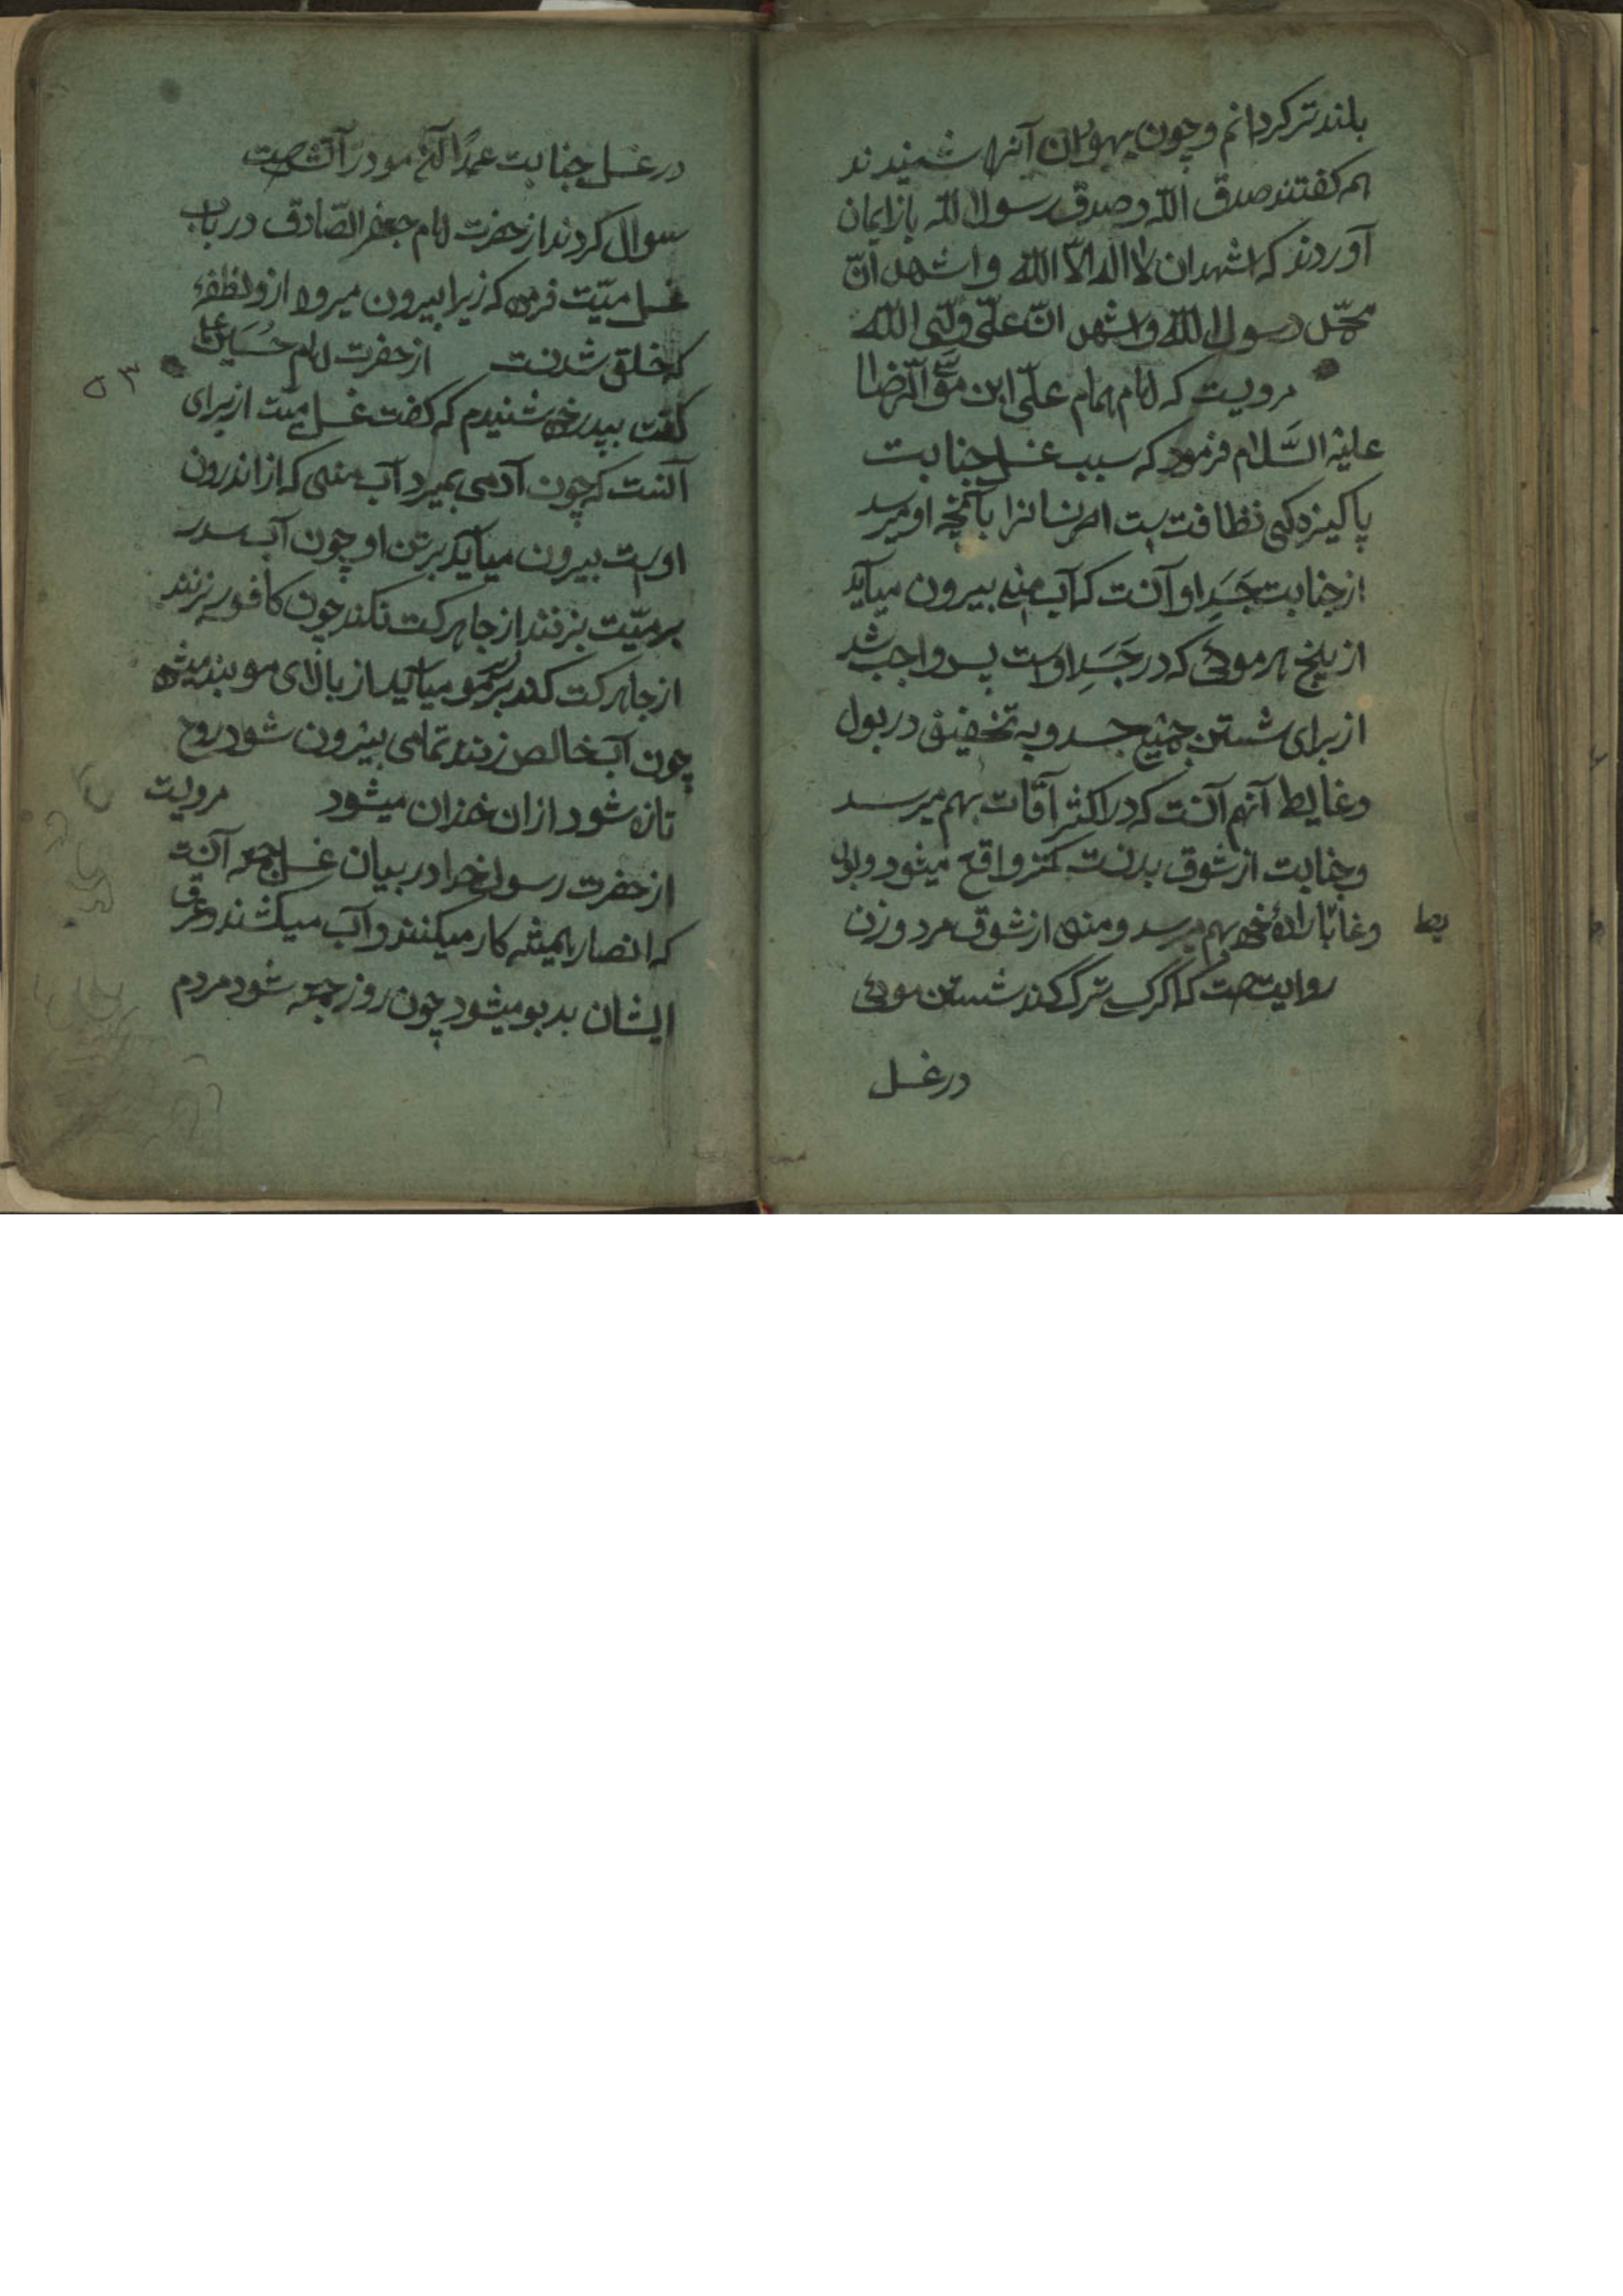 بلندتر کردانم و چون یهودان آنها شنیدند
همه کفتند صدق الله و صدق رسول الله باز ایمان
آوردند که اشهد ان لا اله الا الله و اشهد ان
محمد رسول الله و اشهد ان علی ولی الله
مرویست که امام همام علی ابن موسی الرضا
علیه السلام فرمود که سبب غسل جنابت
پاکیزه کی نظافت است مر انسانرا بآنچه او میرسد
از جنابت جسد او آنست که آب منی بیرون میآید
از بیخ هر موئی که در جسد اوست پس واجب شد
از برای شستن جمیع جسد و به تخفیف در بول
و غایط آنهم آنست که در اکثر آقات بهم میرسد
و جنابت از شوق بدنست کمتر واقع میشود و بول
و غایط باراده خود بهم میرسد و منی از شوق مرد و زن
روایتست که اکر کسی ترک کند شستن موئی
در غسل
در غسل جنابت عمدا آن مو در آتشست
سوال کردند از حضرت امام جعفر الصادق در باب
غسل میت فرمود که زیرا بیرون میرود از و نطفهٔ
که خلق شدنست از حضرت امام حسین
۵۳
کفت بپدر خود شنیدم که کفت غسل میت از برای
آنست که چون آدمی بمیرد آب منی که از اندرون
اوست بیرون میآید بر تن او چون آب سدر
بر میت بزنند از جا حرکت نکند چون کافور بزنند
از جا حرکت کند بر سر مو میآید از بالای مو بند میشود
چون آب خالص زنند تمامی بیرون شود روح
تازه شود ازان خزان میشود مرویست
از حضرت رسول خدا در بیان غسل جمعه آنست
که انصار همیشه کار میکنند و آب میکشند و عرق
ایشان بدبو میشود چون روز جمعه شود مردم